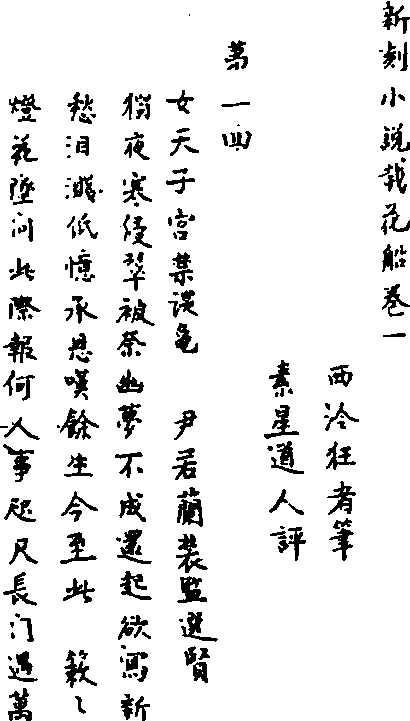 新刻小説載花船卷一
西泠狂者筆
素星道人評
苐一回
女天子宮禁談龟　尹若蘭裝監選賢
獨夜寒侵翠被奈幽夢不成還起欲寫新
愁泪濺低憶承恩嘆餘生今至此　簌〻
燈花墜问此際報何人事咫尺長门過萬